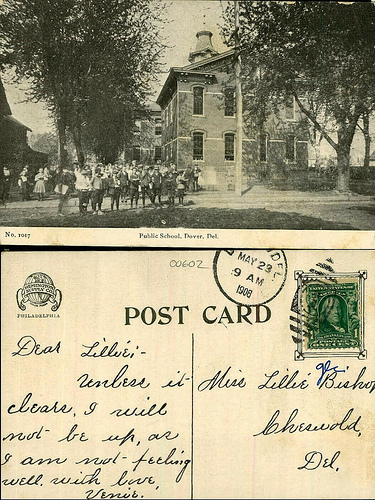 No. 1017
Public School, Dover, Del.
DEL.
MAY 23
9 AM
1908
C0602
PHILADELPHIA
POST CARD
Dear Lillie:-
Unless it
clears, I will
not be up, as
I am not feeling
well, with love,
Venie.
Miss Lillie V. Bishop
Cheswold,
Del.